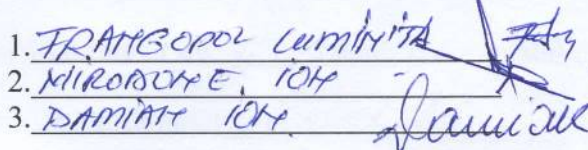 1. FRANGOPOL LUMINITA
2. MIRODONE ION
3. DAMIAN ION Damian